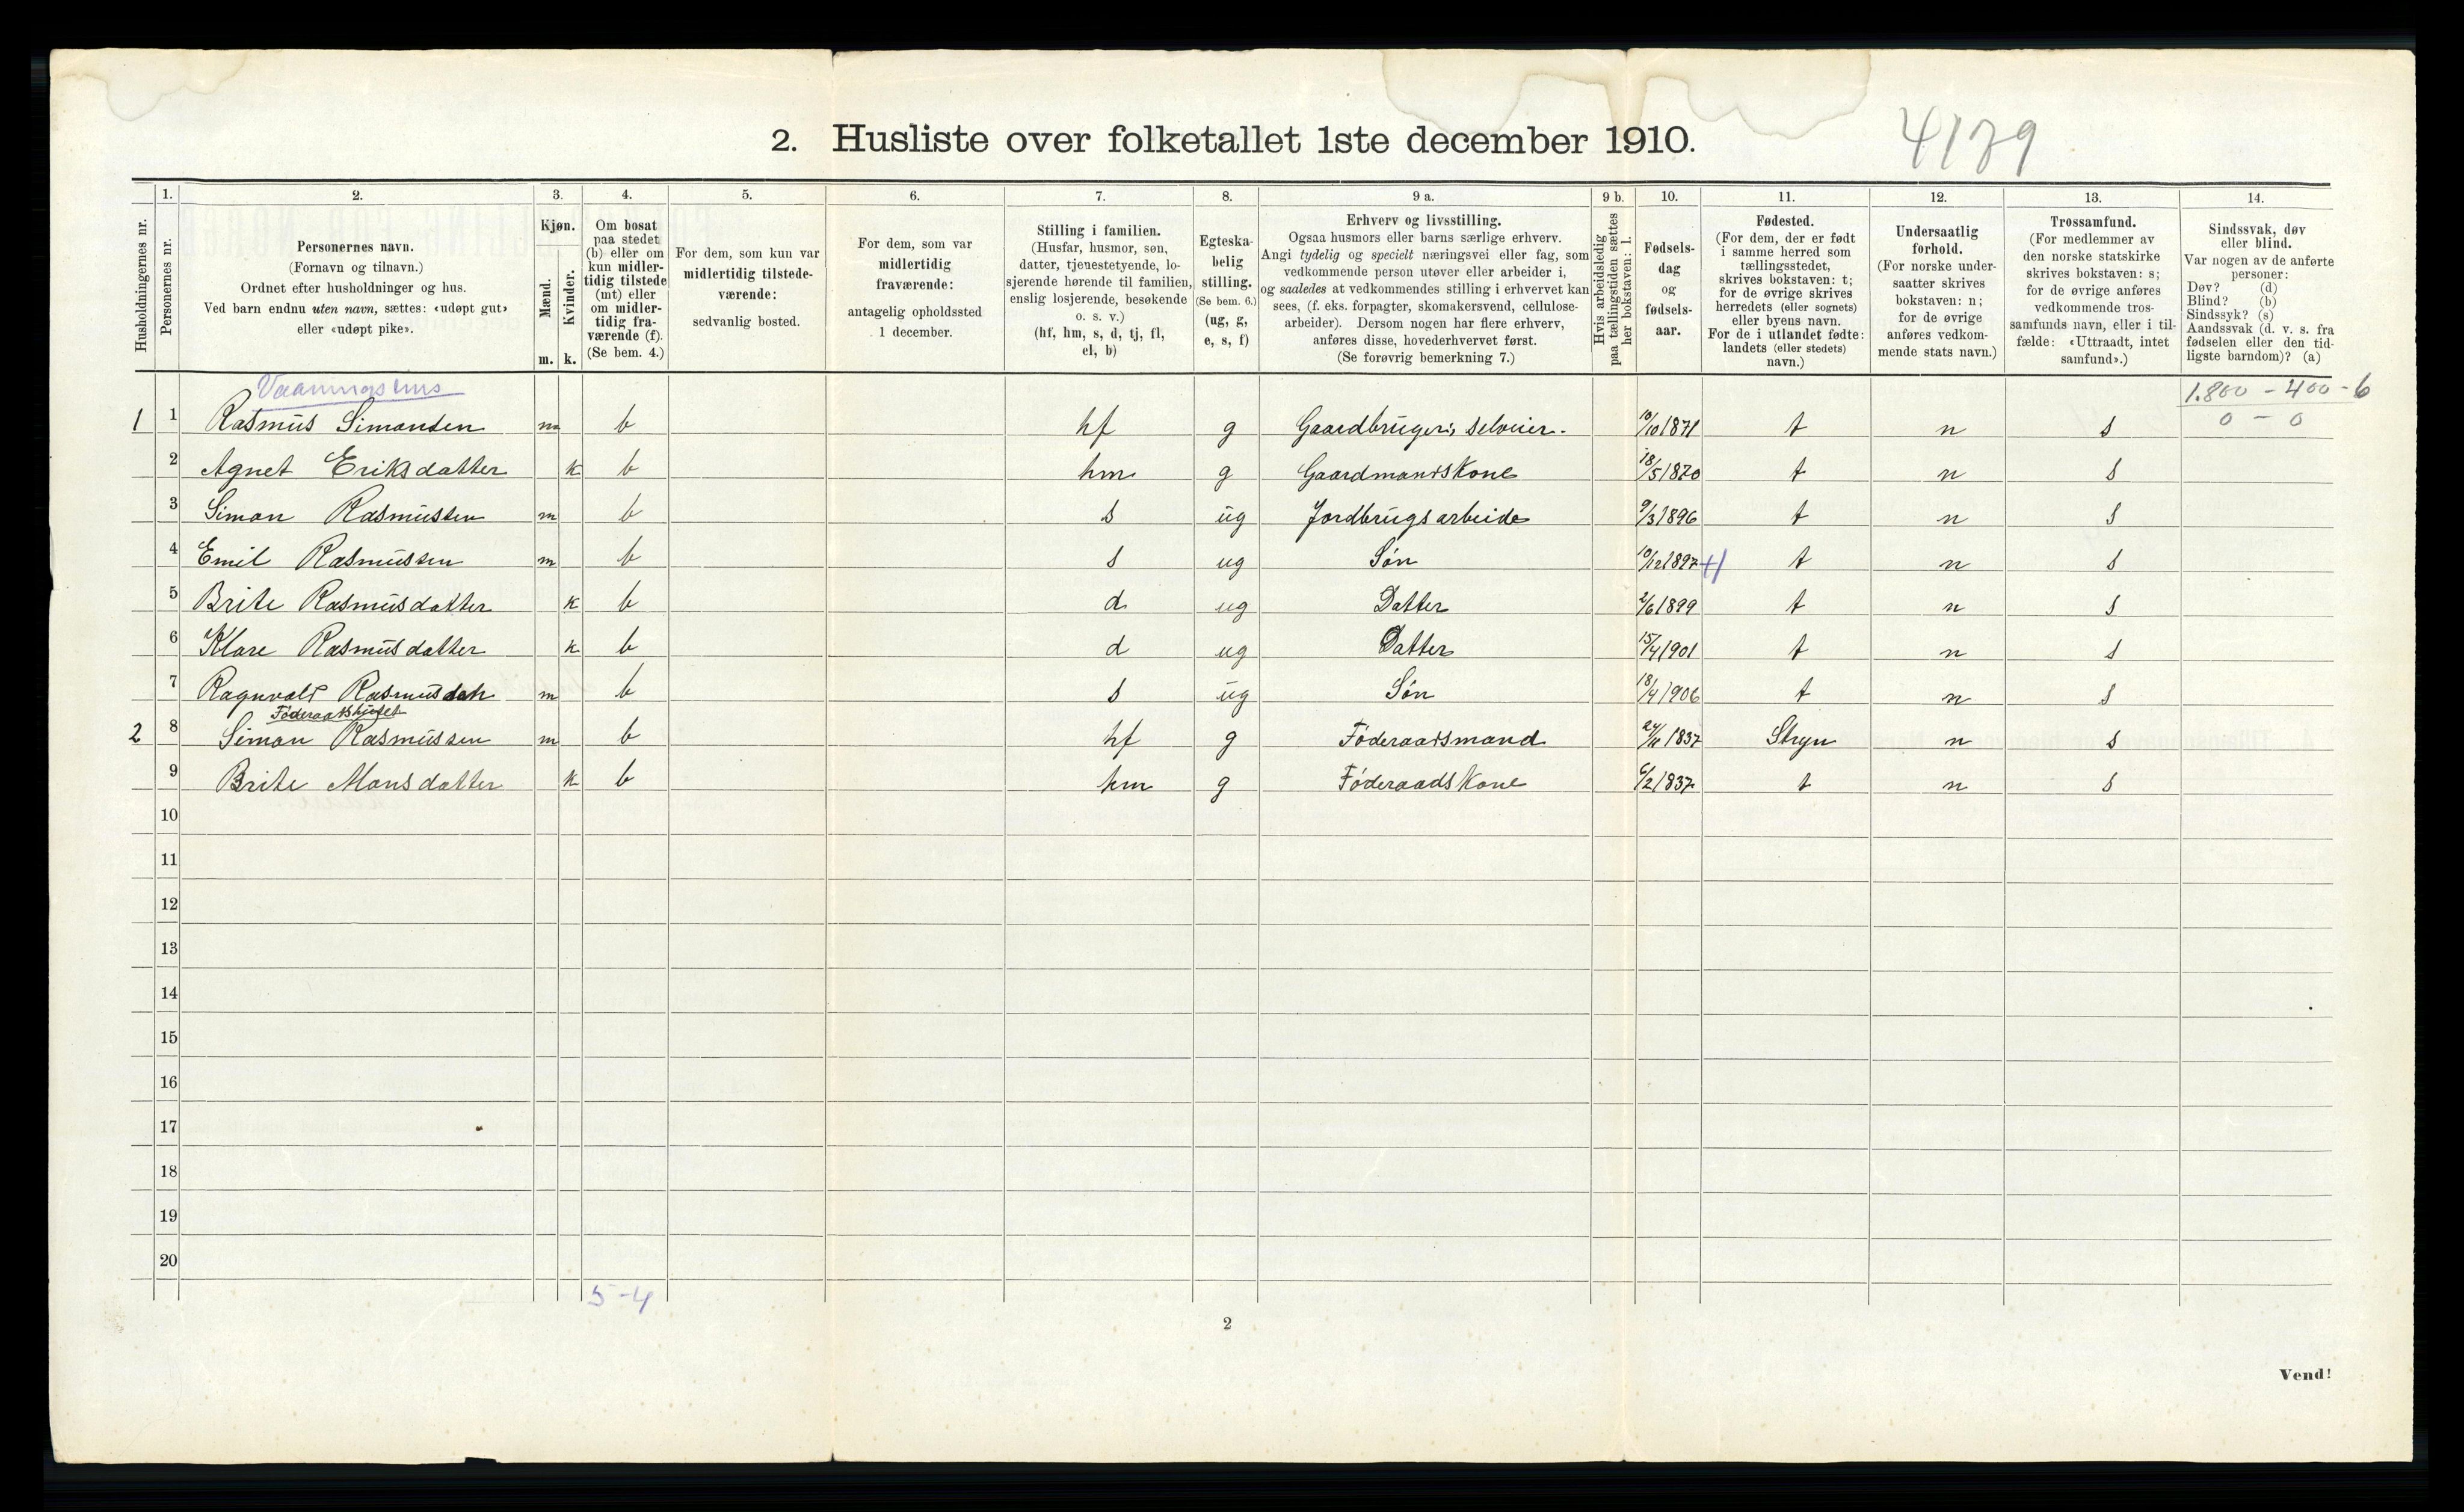 4179
2. Husliste over folketallet 1ste december 1910.
Husholdningernes nr.
1. Personernes nr.
2. Personernes navn.
(Fornavn og tilnavn.)
Ordnet efter husholdninger og hus.
Ved barn endnu uten navn, sættes: «udøpt gut»
eller «udøpt pike».
3. Kjøn.
Mænd. Kvinder.
m. k.
4. Om bosat
paa stedet
(b) eller om
kun midler-
tidig tilstede
(mt) eller
om midler-
tidig fra-
værende (f).
(Se bem. 4.)
5. For dem, som kun var
midlertidig tilstede-
værende:
sedvanlig bosted.
6. For dem, som var
midlertidig
fraværende:
antagelig opholdssted
1 december.
7. Stilling i familien.
(Husfar, husmor, søn,
datter, tjenestetyende, lo-
sjerende hørende til familien,
enslig losjerende, besøkende
o. s. v.)
(hf, hm, s, d, tj, fl,
el, b)
8. Egteska-
belig
stilling.
(Se bem. 6.)
(ug, g,
e, s, f)
9 a. Erhverv og livsstilling.
Ogsaa husmors eller barns særlige erhverv.
Angi tydelig og specielt næringsvei eller fag, som
vedkommende person utøver eller arbeider i,
og saaledes at vedkommendes stilling i erhvervet kan
sees, (f. eks. forpagter, skomakersvend, cellulose-
arbeider). Dersom nogen har flere erhverv,
anføres disse, hovederhvervet først.
(Se forøvrig bemerkning 7.)
9 b. Hvis arbeidsledig
paa tællingstiden sættes
her bokstaven: l.
10. Fødsels-
dag
og
fødsels-
aar.
11. Fødested.
(For dem, der er født
i samme herred som
tællingsstedet,
skrives bokstaven: t;
for de øvrige skrives
herredets (eller sognets)
eller byens navn.
For de i utlandet fødte:
landets (eller stedets)
navn.)
12. Undersaatlig
forhold.
(For norske under-
saatter skrives
bokstaven: n;
for de øvrige
anføres vedkom-
mende stats navn.)
13. Trossamfund.
(For medlemmer av
den norske statskirke
skrives bokstaven: s;
for de øvrige anføres
vedkommende tros-
samfunds navn, eller i til-
fælde: «Uttraadt, intet
samfund».)
14. Sindssvak, døv
eller blind.
Var nogen av de anførte
personer:
Døv? (d)
Blind? (b)
Sindssyk? (s)
Aandssvak (d. v. s. fra
fødselen eller den tid-
ligste barndom)? (a)
Vaaningshus
1.800 - 400 - 6
0 - 0
1 1 Rasmus Simonsen m b hf g Gaardbruger, selveier. 10/10 1871 t n s
2 Agnet Eriksdatter k b hm g Gaardmandskone 18/5 1870 t n s
3 Simon Rasmussen m b s ug Jordbrugsarbeide 9/3 1896 t n s
4 Emil Rasmussen m b s ug Søn 10/12 1897 t n s
5 Brite Rasmusdatter k b d ug Datter 2/6 1899 t n s
6 Klare Rasmusdatter k b d ug Datter 15/4 1901 t n s
7 Ragnvald Rasmussen m b s ug Søn 18/4 1906 t n s
Føderaadshuset
2 8 Simon Rasmussen m b hf g Føderaadsmand 1837 Stryn n s
9 Brite Monsdatter k b hm g Føderaadskone 6/2 1837 t n s
10
11
12
13
14
15
16
17
18
19
20
5-4
2
Vend!